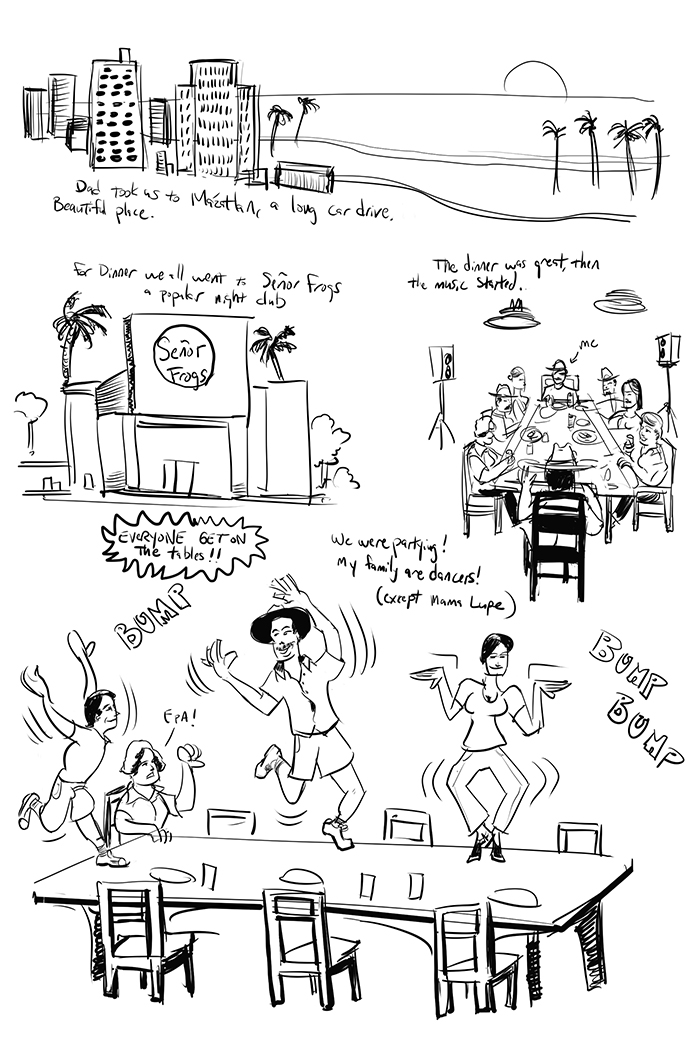 Dad took us to Mazatlan, a long car drive.
Beautiful place.
For Dinner we all went to Señor Frogs
a popular night club
Señor
Frogs
The dinner was great, then
the music started..
me
EVERYONE GET ON
The tables!!
We were partying!
My family are dancers!
(except Mama Lupe)
BUMP
EPA!
BUMP
BUMP